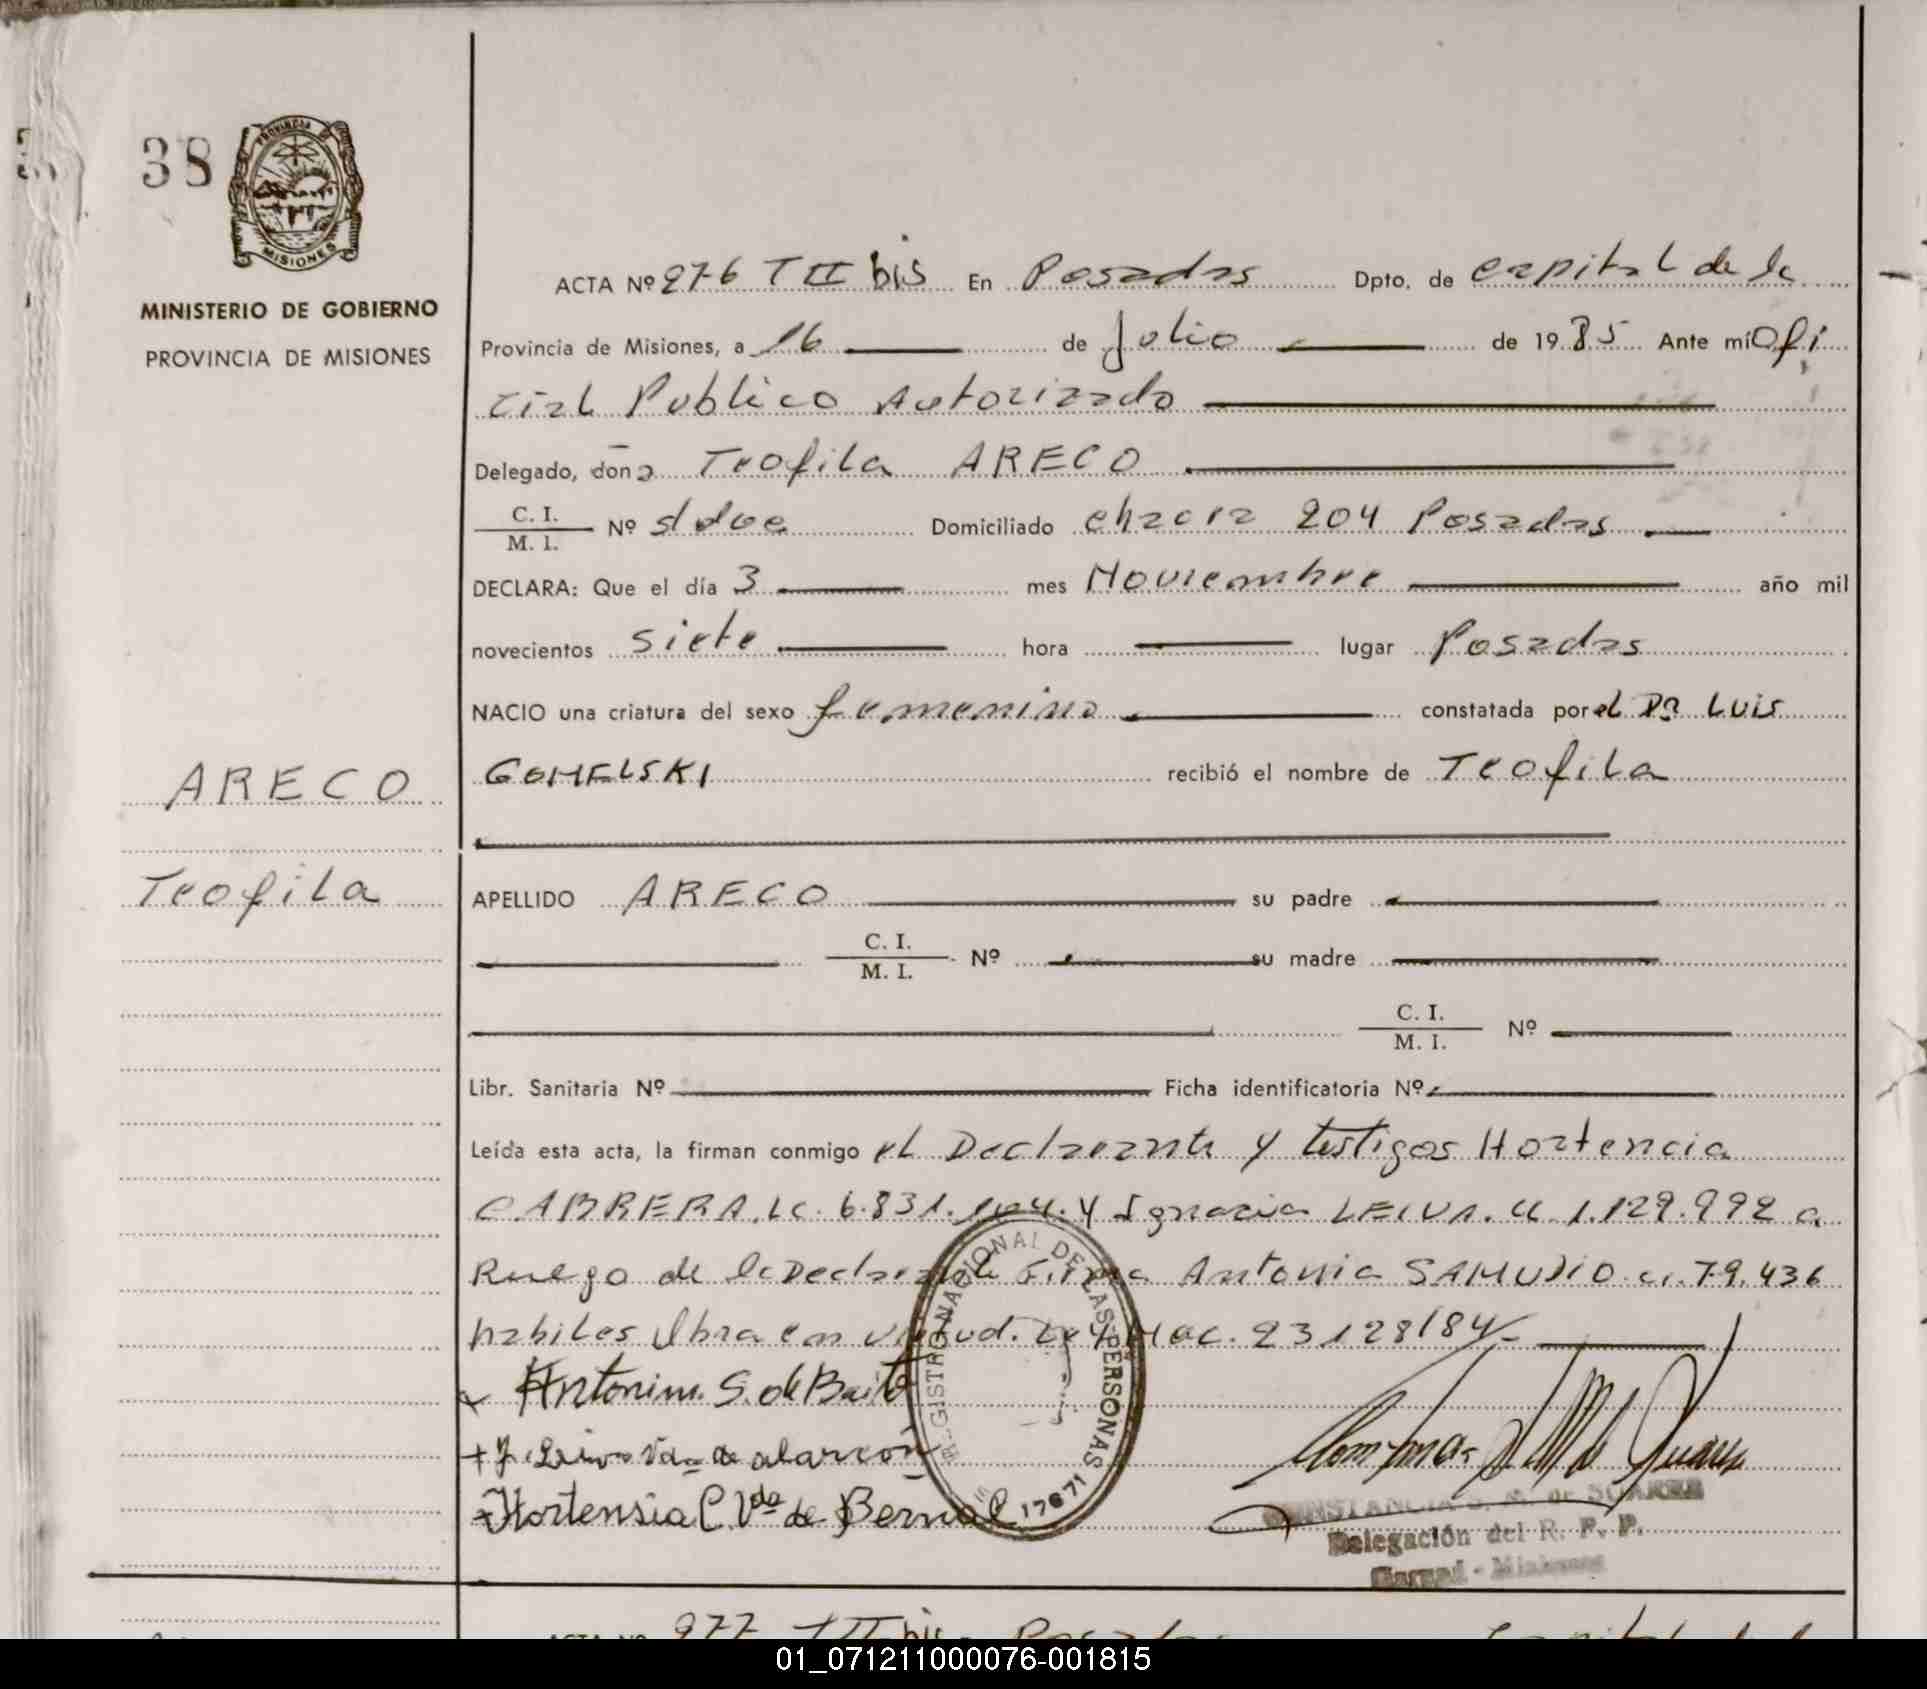 38
PROVINCIA DE
MISIONES
MINISTERIO DE GOBIERNO
PROVINCIA DE MISIONES
ACTA Nº 276 T II bis En Posadas Dpto. de capital de la
Provincia de Misiones, a 16 de Julio de 1985 Ante mí Ofi
cial Publico Autorizado
Delegado, doña Teofila ARECO
C. I.
M. I. Nº s/doc Domiciliado chacra 204 Posadas
DECLARA: Que el día 3 mes Noviembre año mil
novecientos siete hora lugar Posadas
NACIO una criatura del sexo femenino constatada por el Dr Luis
GOMELSKI recibió el nombre de Teofila
ARECO
Teofila
APELLIDO ARECO su padre
C. I.
M. I. Nº su madre
C. I.
M. I. Nº
Libr. Sanitaria Nº Ficha identificatoria Nº
Leída esta acta, la firman conmigo el Declarante y testigos Hortencia
CABRERA. LC. 6.831. y Ignacia LEIVA. 1.129.992 a
Ruego de la Declarante Firma Antonia SAMUDIO. ci. 79.436
habiles Obra en virtud. Ley Nac. 23128/84
Antonina S. de
Vda de alarcon
Hortensia C Vda de Bernal
REGISTRO NACIONAL DE LAS PERSONAS
17671
CONSTANCIA S. M. de SUAREZ
Delegación del R. P. P.
Garupá - Misiones
977 T II bis Posadas
01_071211000076-001815